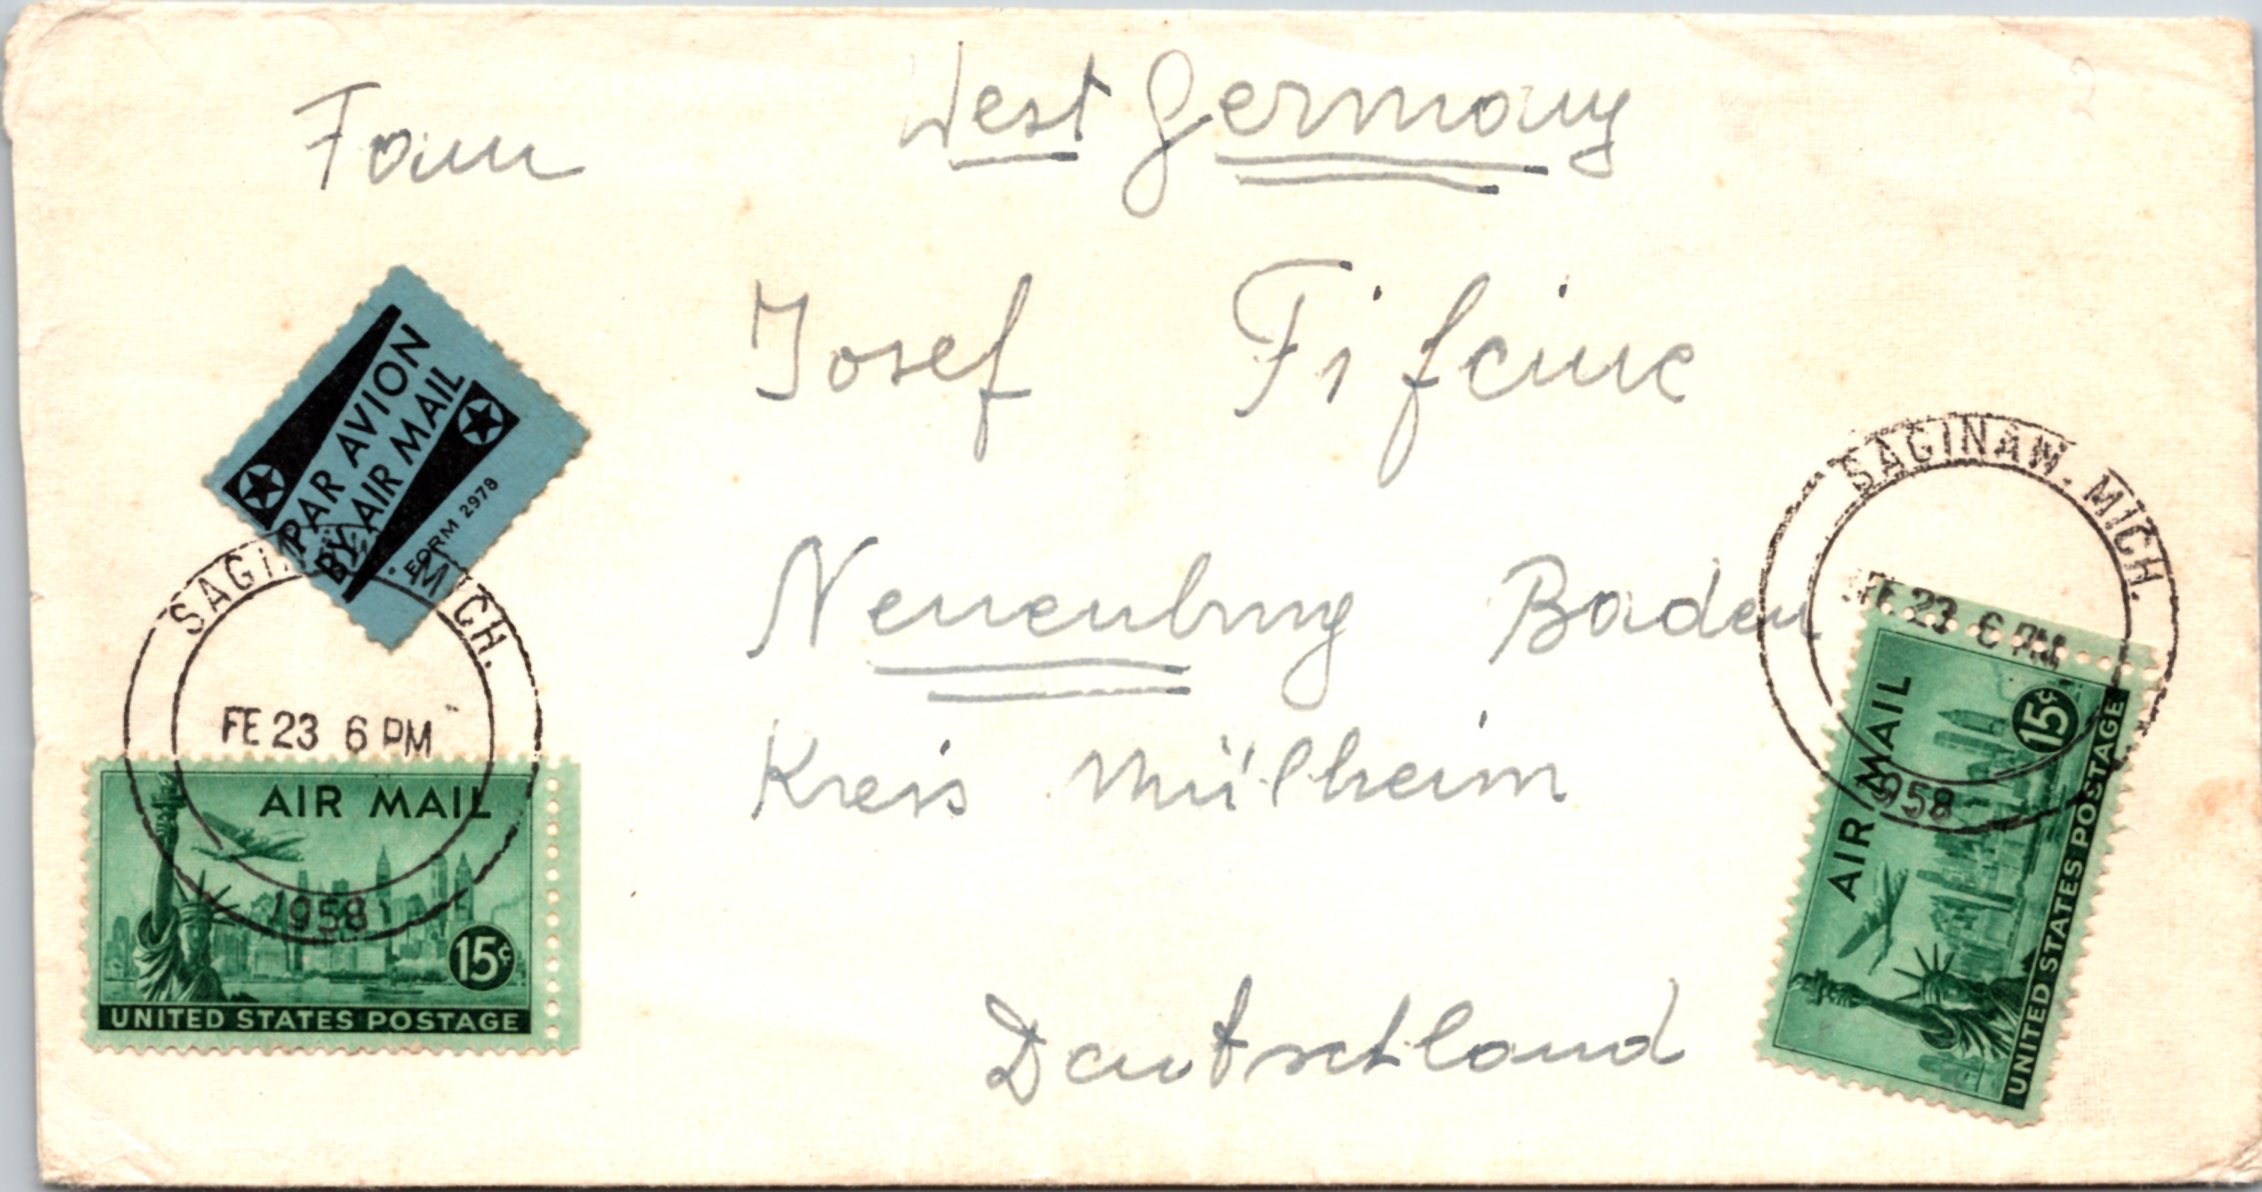 West Germany
Fam
Josef Fifeine
Neuenburg Baden
Kreis Mülheim
Deutschland
PAR AVION
BY AIR MAIL
FORM 2978
SAGINAW, MICH.
FE 23 6 PM
1958
AIR MAIL
15¢
UNITED STATES POSTAGE
SAGINAW, MICH.
FE 23 6 PM
1958
AIR MAIL
15¢
UNITED STATES POSTAGE